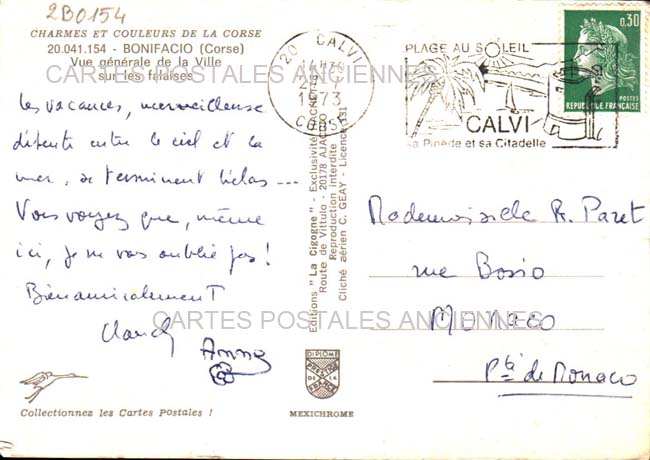 2B0154
CHARMES ET COULEURS DE LA CORSE
20.041.154 - BONIFACIO (Corse)
Vue générale de la Ville
sur les falaises
Les vacances, merveilleuse
détente entre le ciel et la
mer, se terminent hélas ...
Vous voyez que, même
ici, je ne vous oublie pas!
Bien amicalement
Anny
Collectionnez les Cartes Postales !
Editions "La Cigogne" - Exclusivité HACHETTE
Route de Vittulo - 20178 AJACCIO
Reproduction interdite
Cliché aérien C. GEAY - Licence
DIPLOME
PRESTIGE
DE LA
FRANCE
MEXICHROME
20 CALVI
1973
CORSE
PLAGE AU SOLEIL
CALVI
sa Pinède et sa Citadelle
0,30
POSTES
REPUBLIQUE FRANÇAISE
Mademoiselle R. Paret
rue Bosio
Monaco
Pté de Monaco
CARTES POSTALES ANCIENNES
CARTES POSTALES ANCIENNES